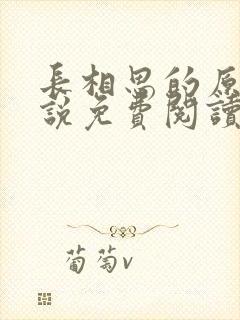 長相思的原
說免費閱讀
葡萄v